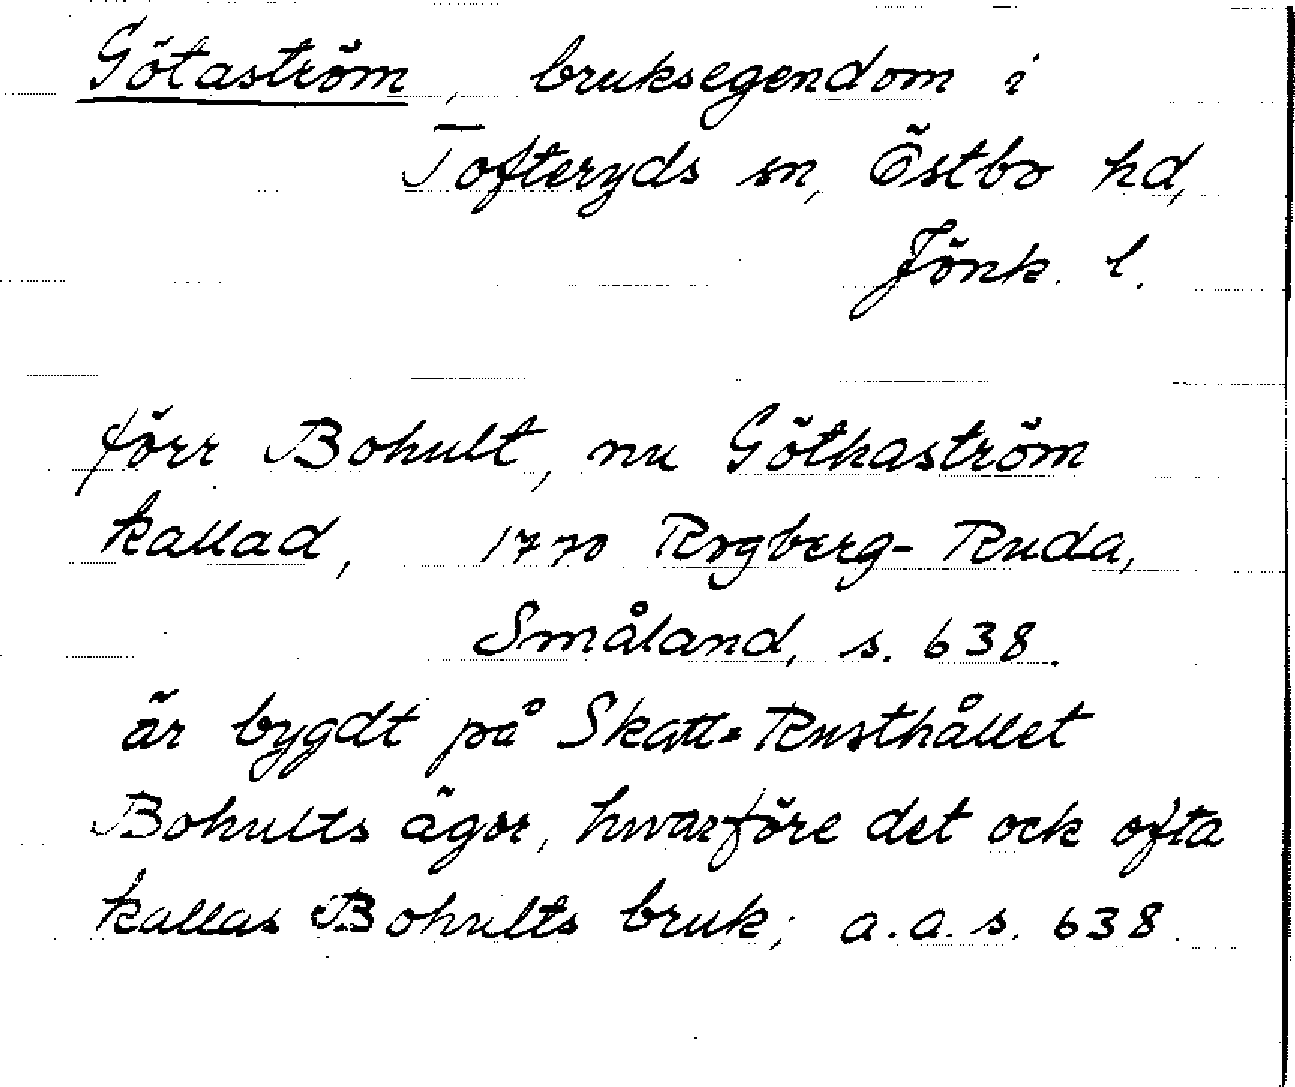 Götaström, bruksegendom i
Tofteryds sn, Östbo hd,
Jönk. l.
förr Bohult, nu Göthaström
kallad, 1770 Rogberg-Ruda,
Småland, s. 638.
är bygdt på Skatte-Rusthållet
Bohults ägor, hvarföre det ock ofta
kallas Bohults bruk; a.a.s. 638.